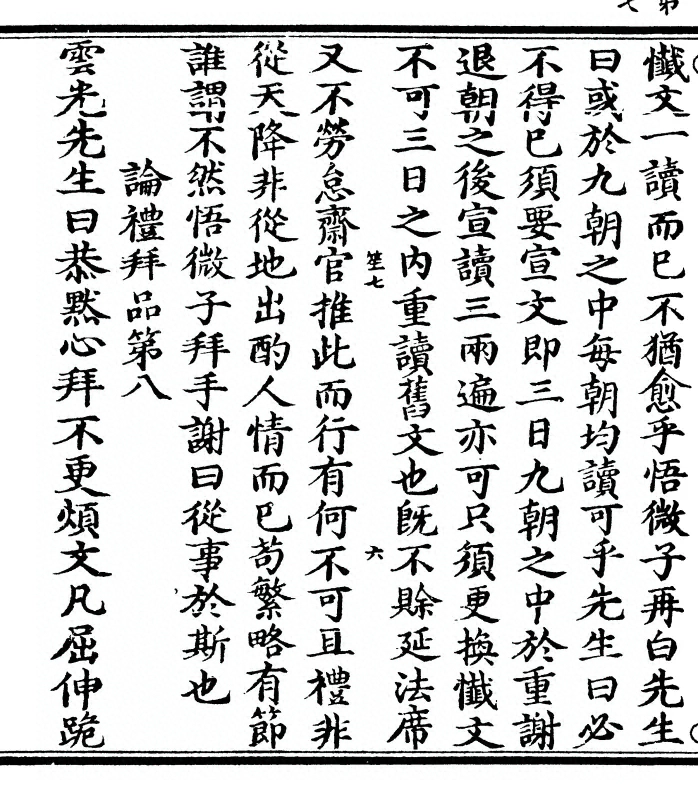 懺文一讀而巳不猶愈乎悟微子再白先生
曰或於九朝之中每朝均讀可乎先生曰必
不得巳須要宣文即三日九朝之中於重謝
退朝之後宣讀三兩遍亦可只須更換懺文
不可三日之内重讀舊文也旣不賖延法席
笙七 六
又不勞怠齋官推此而行有何不可且禮非
從天降非從地出酌人情而巳苟繁略有節
誰謂不然悟微子拜手謝曰從事於斯也
論禮拜品第八
雲光先生曰恭黙心拜不更煩文凡屈伸跪